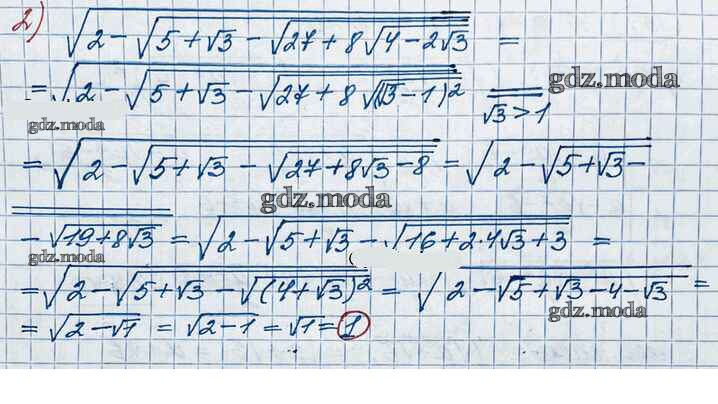 2) √(2 − √(5 + √3 − √(27 + 8√(4 − 2√3)))) =
= √(2 − √(5 + √3 − √(27 + 8√((√3 − 1)²)))) √3 > 1
gdz.moda
gdz.moda
= √(2 − √(5 + √3 − √(27 + 8√3 − 8))) = √(2 − √(5 + √3 −
gdz.moda
− √(19 + 8√3))) = √(2 − √(5 + √3 − √(16 + 2·4√3 + 3))) =
gdz.moda
= √(2 − √(5 + √3 − √((4 + √3)²))) = √(2 − √(5 + √3 − 4 − √3)) =
gdz.moda
= √(2 − √1) = √(2 − 1) = √1 = 1